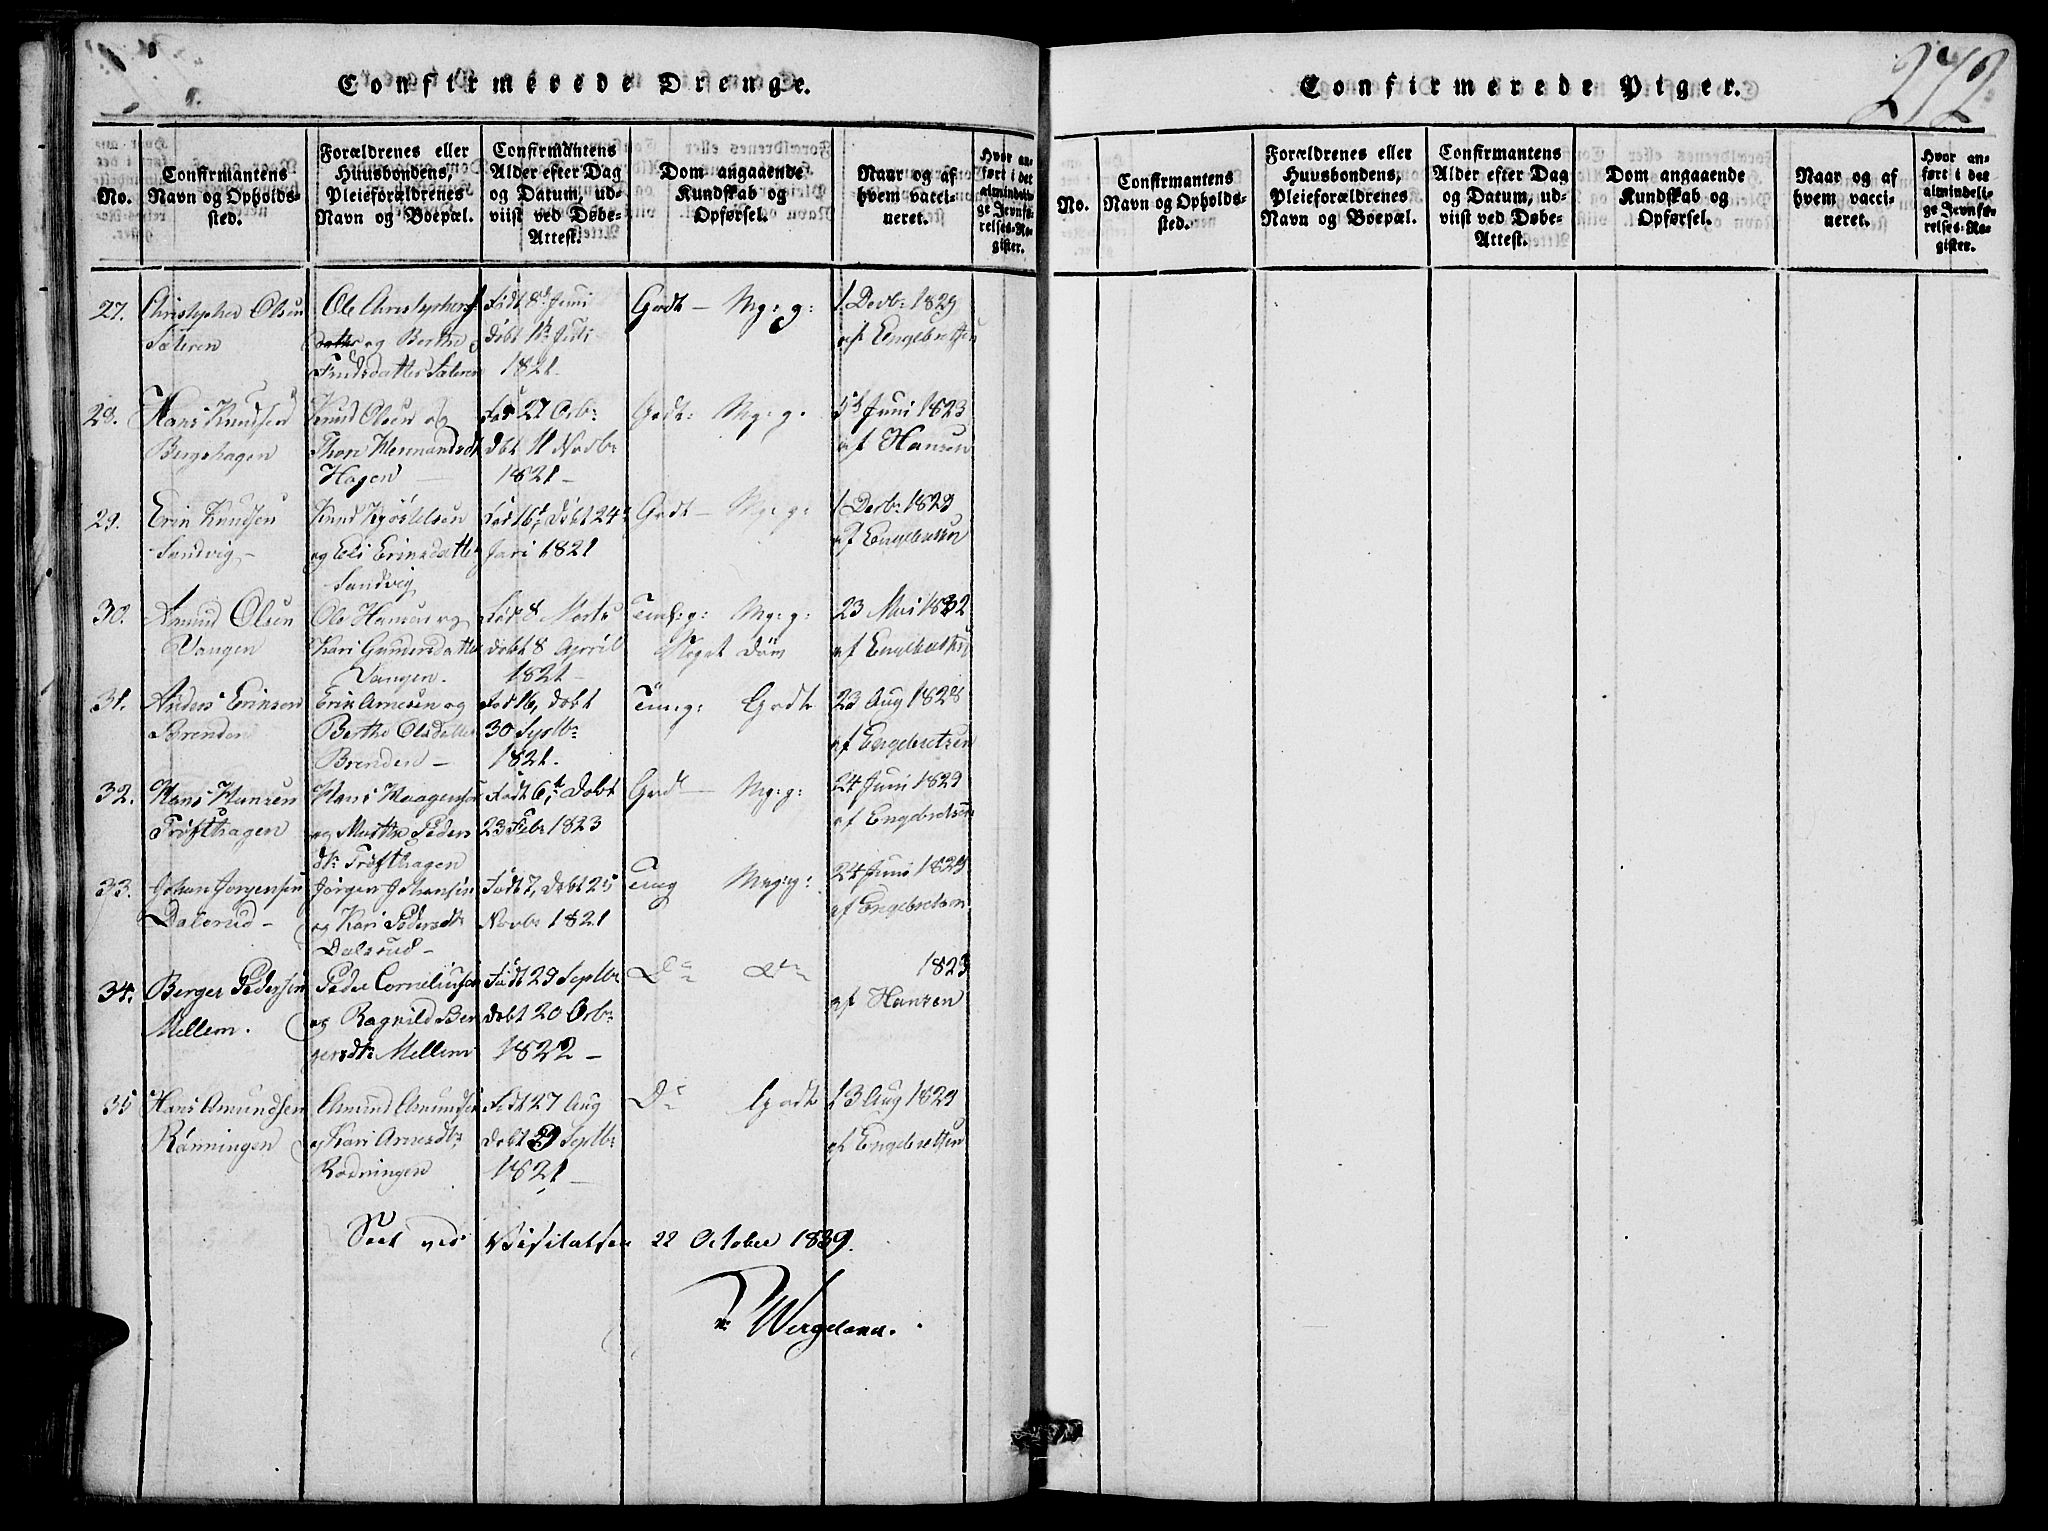 Confirmerede Drenge.
No.
Confirmantens
Navn og Opholds-
sted.
Forældrenes eller
Huusbondens,
Pleieforældrenes
Navn og Boepæl.
Confirmantens
Alder efter Dag
og Datum, ud-
viist ved Døbe-
Attest.
Dom angaaende
Kundskab og
Opførsel.
Naar og af
hvem vacci-
neret.
Hvor an-
ført i det
almindeli-
ge Jevnfø-
relses-Re-
gister.
27.
Christopher Olsen
Sæteren
Ole Christophers
og Berthe
Knudsdatter Sæteren
Født 8d Juni
døbt 1te Juli
1821.
Godt – Mg: g:
1 Decb: 1829
af Engebretsen
28.
Hans Knudsen
Bergshagen
Knud Olsen og
Thore Hermandsdt
Hagen
Fød 27 Octb:
døbt 11 Novb:
1821 –
Godt: Mg: g.
5t Juni 1823
af Hansen
29.
Eric Knudsen
Sandvig –
Knud Kjøstelsen
og Eli Ericsdatter
Sandvig
Fød 16, døbt 24
Jari 1821
Godt – Mg: g:
1 Decb: 1829
af Engebretsen
30.
Amund Olsen
Vangen
Ole Hansen og
Kari Gundersdatter
Vangen.
Fød 8 Marts
døbt 8 April
1821 –
Meget
Mg: g:
23 Mai 1832
af Engebretsen
31.
Anders Ericsen
Brenden
Eric Arnesen og
Berthe Olsdatter
Brenden –
Fød 16, døbt
30 Septb:
1821.
Tmg: Godt
23 Aug 1828
af Engebretsen
32.
Hans Hansen
Tröfthagen
Hans Haagensen
og Marthe Peders
dtr Tröfthagen
Født 6te, Døbt
23 Feb: 1823
Godt – Mg: g:
24 Juni 1829
af Engebretsen
33.
Johan Jörgensen
Dalsrud –
Jörgen Johansen
og Kari Pedersdtr
Dalsrud –
Født 7, døbt 25
Novb: 1821
Tmg Mg: g:
24 Juni 1829
af Engebretsen
34.
Berger Pedersen
Mellem.
Peder Corneliusen
og Ragnild Ber
gersdtr Mellem
Født 29 Septb:
døbt 20 Octb:
1822 –
Do Do
1823
af Hansen
35
Hans Amundsen
Rönningen
Amund Amundsen
og Kari Arnesdtr
Rødningen
Født 27 Aug
Døbt 29 Septb:
1821 –
Do Godt
13 Aug 1829
af Engebretsen
Seet ved Visitatsen 22 October 1839.
Wergeland.
Confirmerede Piger.
272
No.
Confirmantens
Navn og Opholds-
sted.
Forældrenes eller
Huusbondens,
Pleieforældrenes
Navn og Boepæl.
Confirmantens
Alder efter Dag
og Datum, ud-
viist ved Døbe-
Attest.
Dom angaaende
Kundskab og
Opførsel.
Naar og af
hvem vacci-
neret.
Hvor an-
ført i det
almindeli-
ge Jevnfø-
relses-Re-
gister.